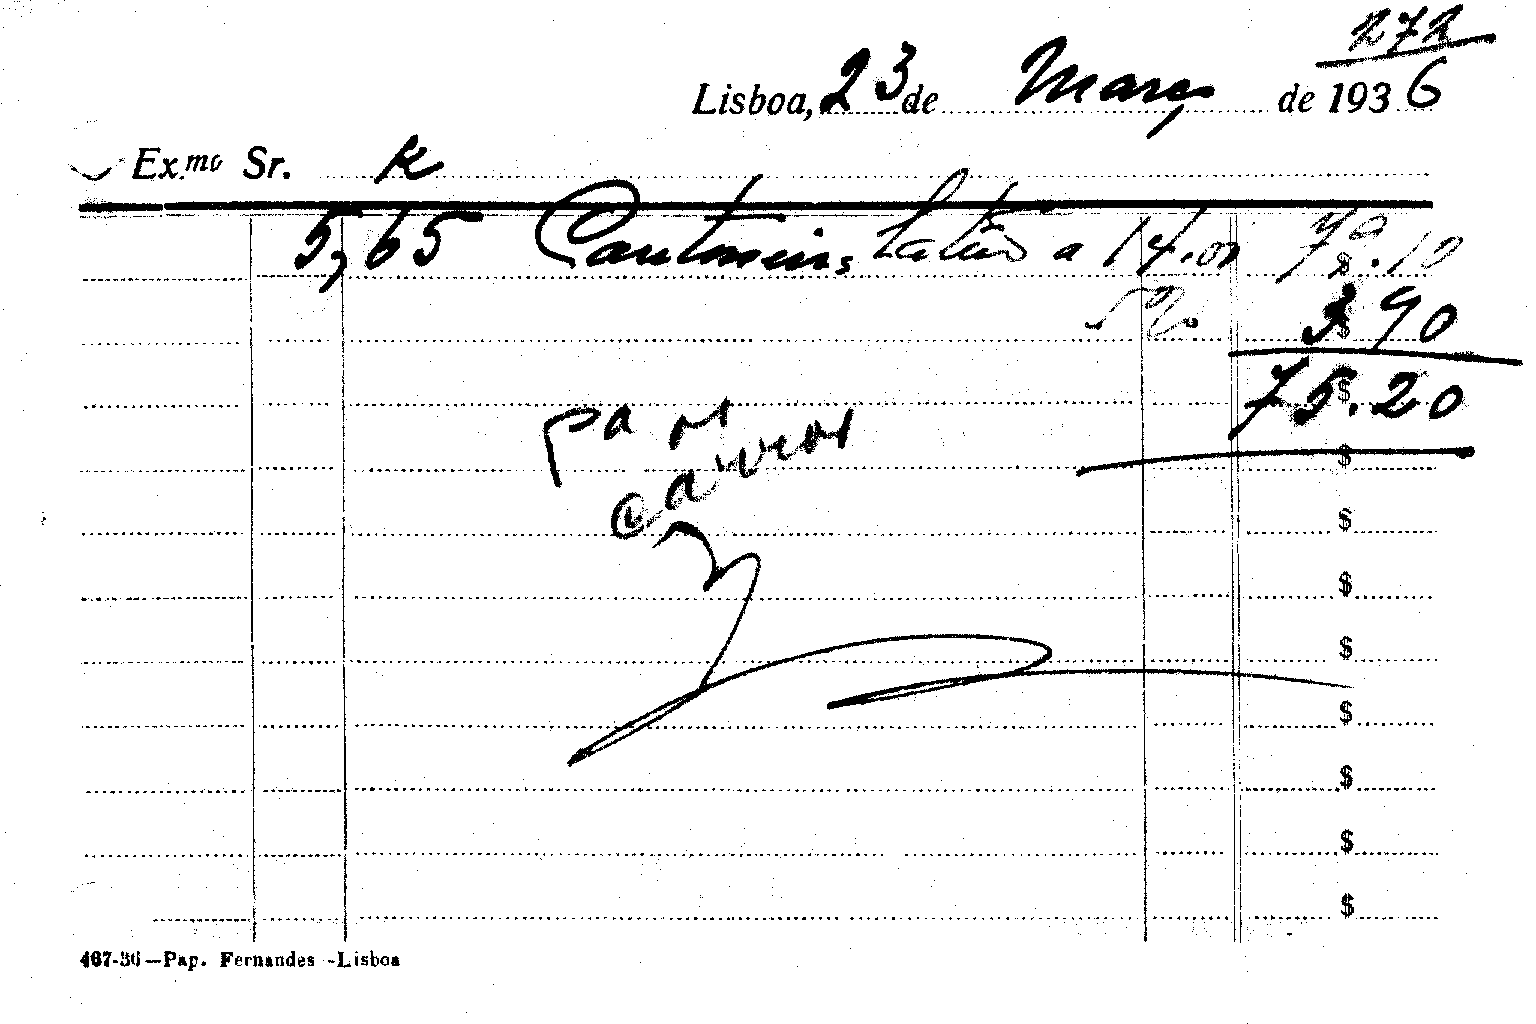 272
Lisboa, 23 de Março de 1936
Ex.mo Sr. K
5,65 Cantoneira Latão a 14.00 79$10
3$90
75$20
Pa os
$
$
$
$
$
$
$
$
467-36—Pap. Fernandes -Lisboa